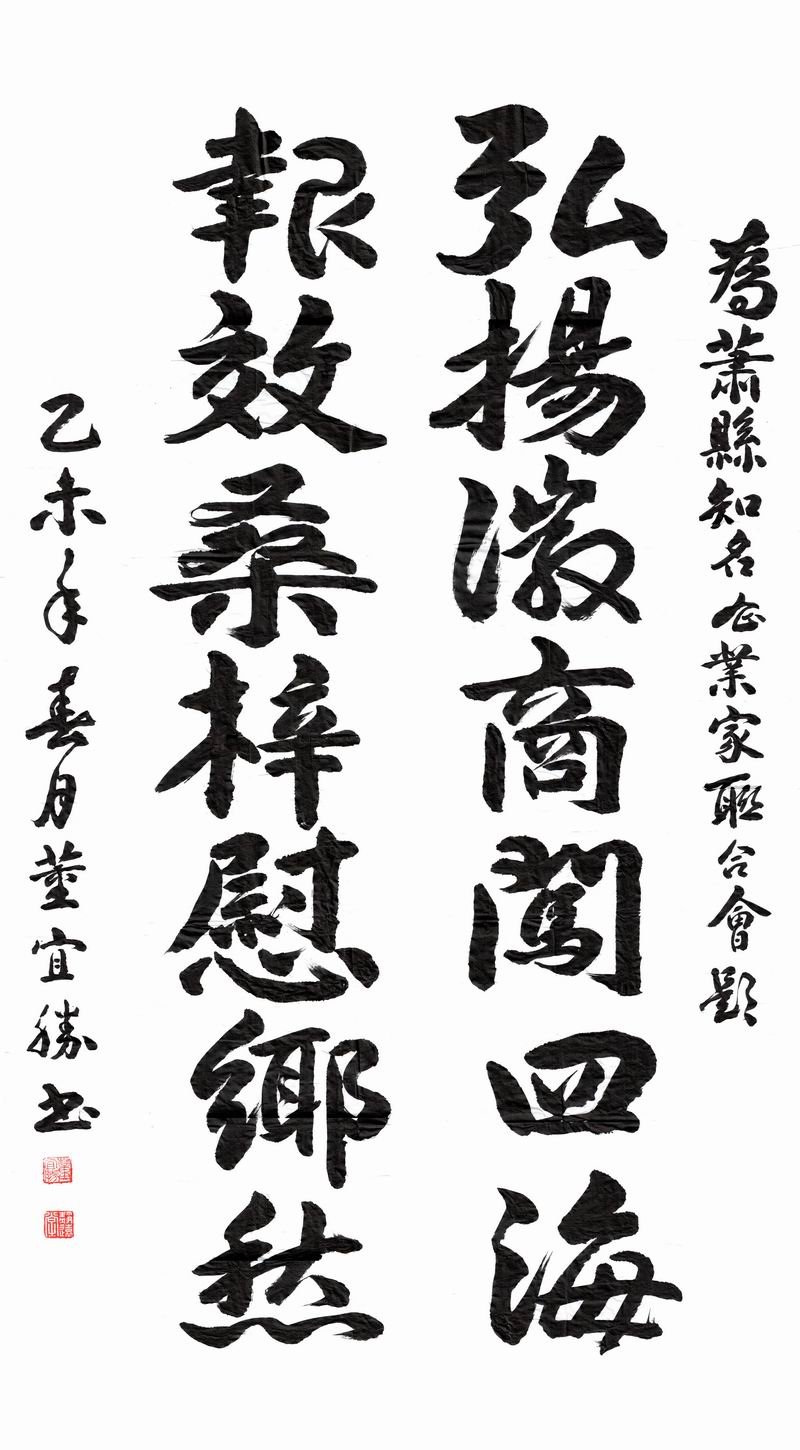 為蕭縣知名企業家聯合會題
弘揚徽商闖四海
報效桑梓慰鄉愁
乙未年春月董宜勝书